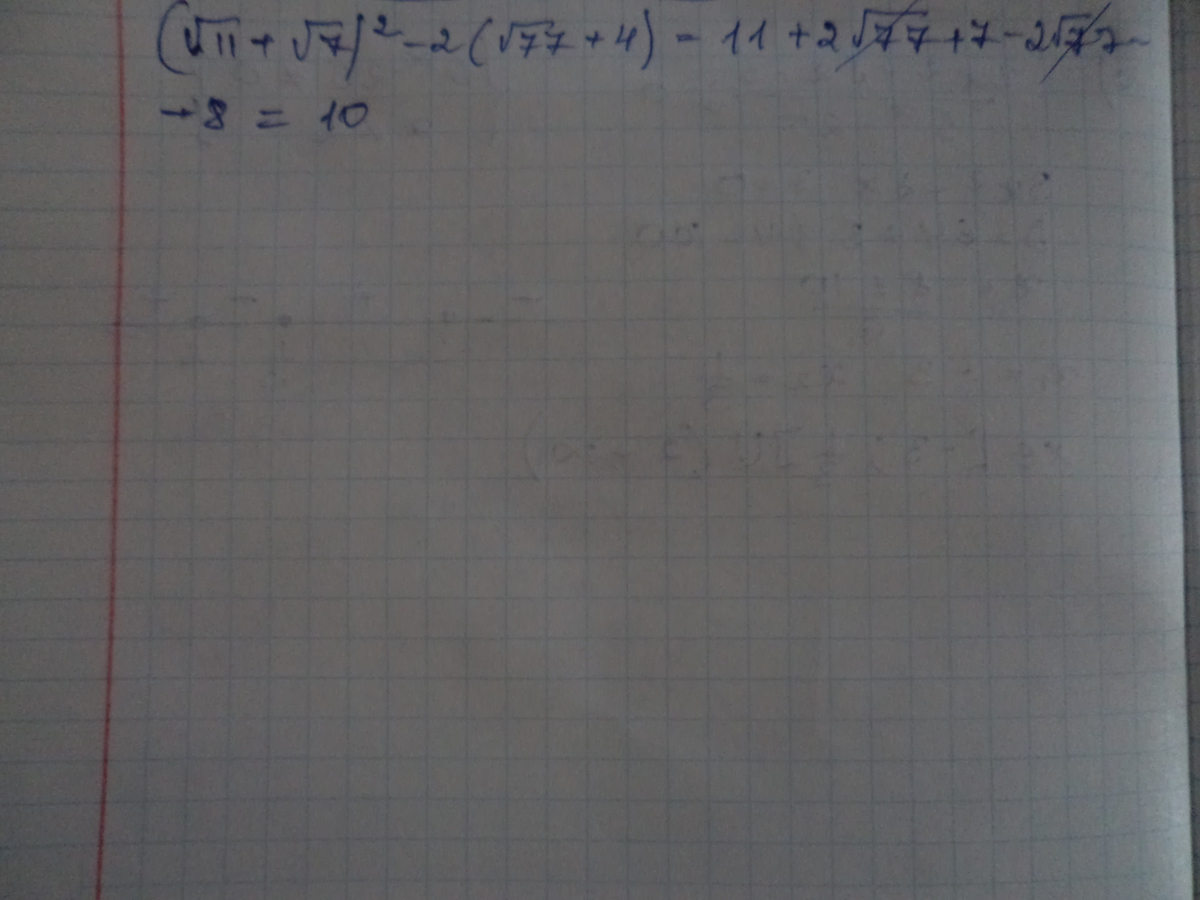 (√11 + √7)² - 2(√77 + 4) = 11 + 2√77 + 7 - 2√77 -
- 8 = 10